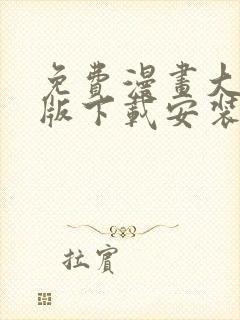 免費漫畫大
版下載安裝
拉賓